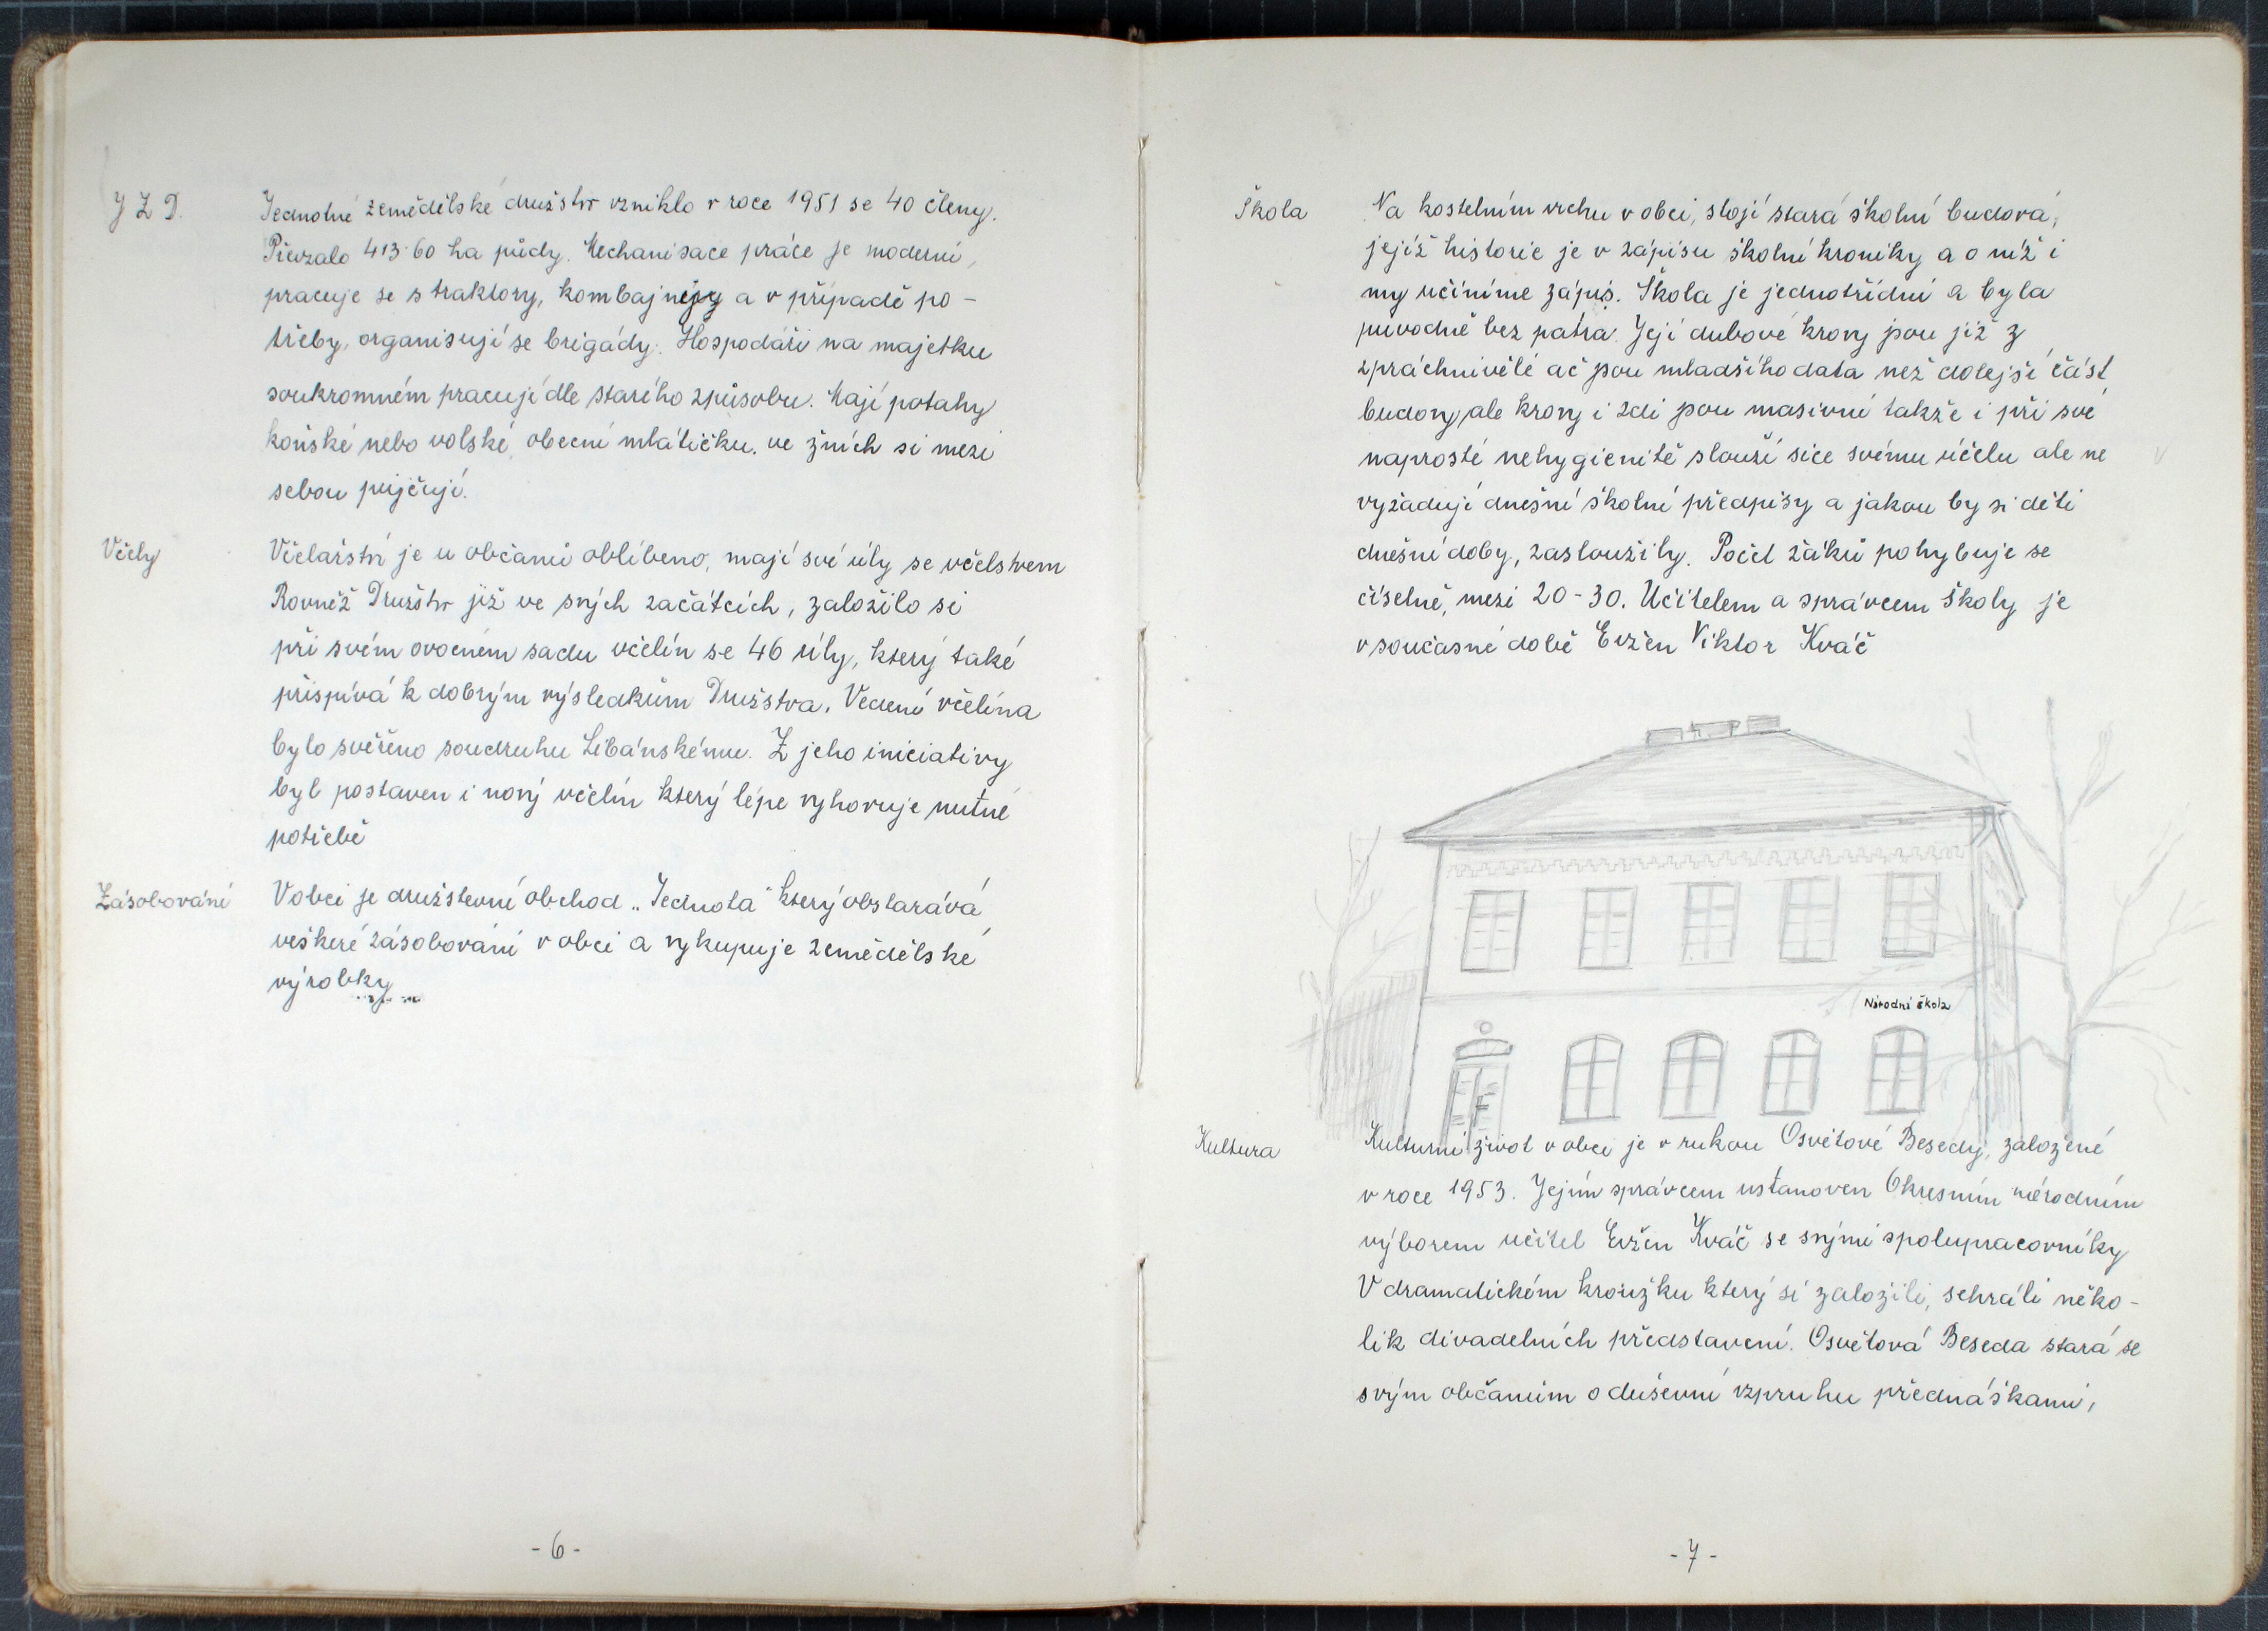 J Z D.
Jednotné zemědělské družstvo vzniklo v roce 1951 se 40 členy.
Převzalo 413·60 ha půdy. Mechanisace práce je moderní,
pracuje se s traktory, kombajny a v případě po-
třeby, organisují se brigády. Hospodáři na majetku
soukromném pracují dle starého způsobu. Mají potahy
koňské nebo volské, obecní mlátičku, ve žních si mezi
sebou půjčují.
Včely
Včelařství je u občanů oblíbeno, mají své úly se včelstvem
Rovněž Družstvo již ve svých začátcích, založilo si
při svém ovocném sadu včelín se 46 úly, který také
přispívá k dobrým výsledkům Družstva. Vedení včelína
bylo svěřeno soudruhu Libánskému. Z jeho iniciativy
byl postaven i nový včelín který lépe vyhovuje nutné
potřebě
Zásobování
V obci je družstevní obchod „Jednota" který obstarává
veškeré zásobování v obci a vykupuje zemědělské
výrobky
- 6 -
Škola
Na kostelním vrchu v obci, stojí stará školní budova,
jejíž historie je v zápisu školní kroniky a o níž i
my učiníme zápis. Škola je jednotřídní a byla
původně bez patra. Její dubové krovy jsou již z
zpráchnivělé ač jsou mladšího data než dolejší část
budovy, ale krovy i zdi jsou masivní takže i při své
naprosté nehygienitě slouží sice svému účelu ale ne
vyžadují dnešní školní předpisy a jakou by si děti
dnešní doby, zasloužily. Počet žáků pohybuje se
číselně, mezi 20-30. Učitelem a správcem školy je
v současné době Evžen Viktor Kváč
Národní škola
Kultura
Kulturní život v obci je v rukou Osvětové Besedy, založené
v roce 1953. Jejím správcem ustanoven Okresním národním
výborem učitel Evžen Kváč se svými spolupracovníky
V dramatickém kroužku který si založili, sehráli něko-
lik divadelních představení. Osvětová Beseda stará se
svým občanům o duševní vzpruhu přednáškami,
- 7 -